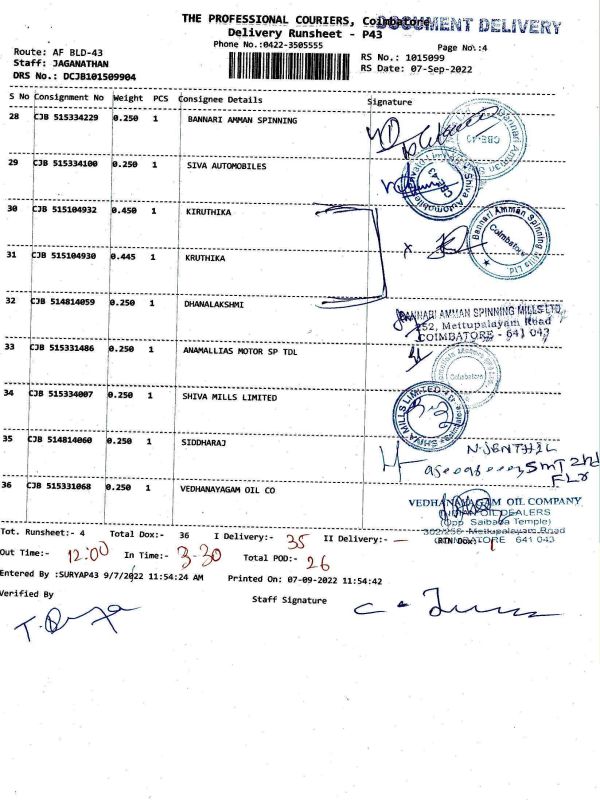 THE PROFESSIONAL COURIERS, Coimbatore
DOCUMENT DELIVERY
Delivery Runsheet - P43
Phone No.:0422-3505555
Page No\:4
Route: AF BLD-43
RS No.: 1015099
Staff: JAGANATHAN
RS Date: 07-Sep-2022
DRS No.: DCJB101509904
S No Consignment No Weight PCS Consignee Details Signature
28 CJB 515334229 0.250 1 BANNARI AMMAN SPINNING
Bannari Amman S
CBE-43
29 CJB 515334100 0.250 1 SIVA AUTOMOBILES
Shiva Automobiles
30 CJB 515104932 0.450 1 KIRUTHIKA
Bannari Amman Spinning Mills Ltd.
Coimbatore
31 CJB 515104930 0.445 1 KRUTHIKA
32 CJB 514814059 0.250 1 DHANALAKSHMI
BANNARI AMMAN SPINNING MILLS LTD.
252, Mettupalayam Road
COIMBATORE - 641 043
33 CJB 515331486 0.250 1 ANAMALLIAS MOTOR SP TDL
Coimbatore
34 CJB 515334007 0.250 1 SHIVA MILLS LIMITED
SHIVA MILLS LIMITED
35 CJB 514814060 0.250 1 SIDDHARAJ
N.SENTHIL
SMT 2nd
FLr
36 CJB 515331068 0.250 1 VEDHANAYAGAM OIL CO
VEDHANAYAGAM OIL COMPANY
INDIAN OIL DEALERS
(Opp. Saibaba Temple)
302/256 Mettupalayam Road
COIMBATORE 641 043
Tot. Runsheet:- 4 Total Dox:- 36 I Delivery:- 35 II Delivery:- — RTN Dox: 1
Out Time:- 12:00 In Time:- 3-30 Total POD:- 26
Entered By :SURYAP43 9/7/2022 11:54:24 AM Printed On: 07-09-2022 11:54:42
Verified By
Staff Signature